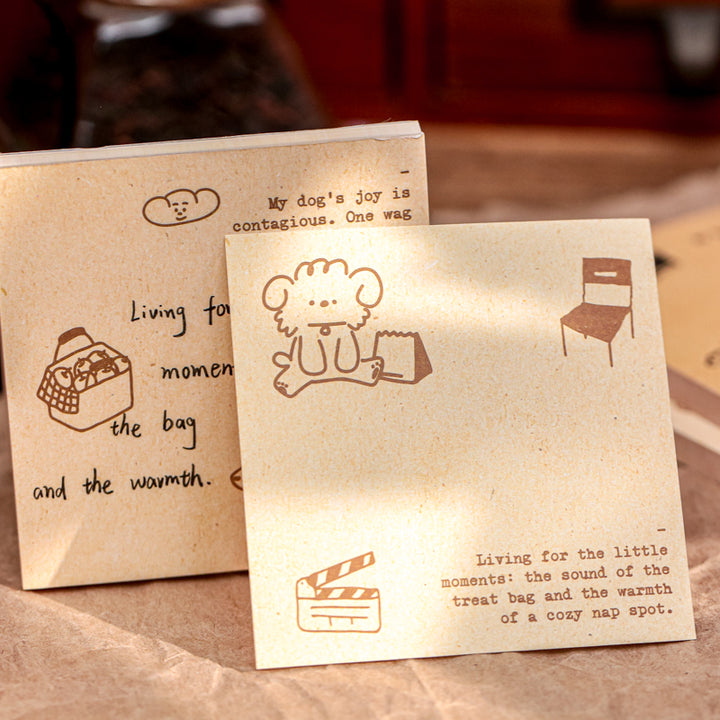 My dog's joy is
contagious. One wag
Living for
momen
the bag
and the warmth.
Living for the little
moments: the sound of the
treat bag and the warmth
of a cozy nap spot.